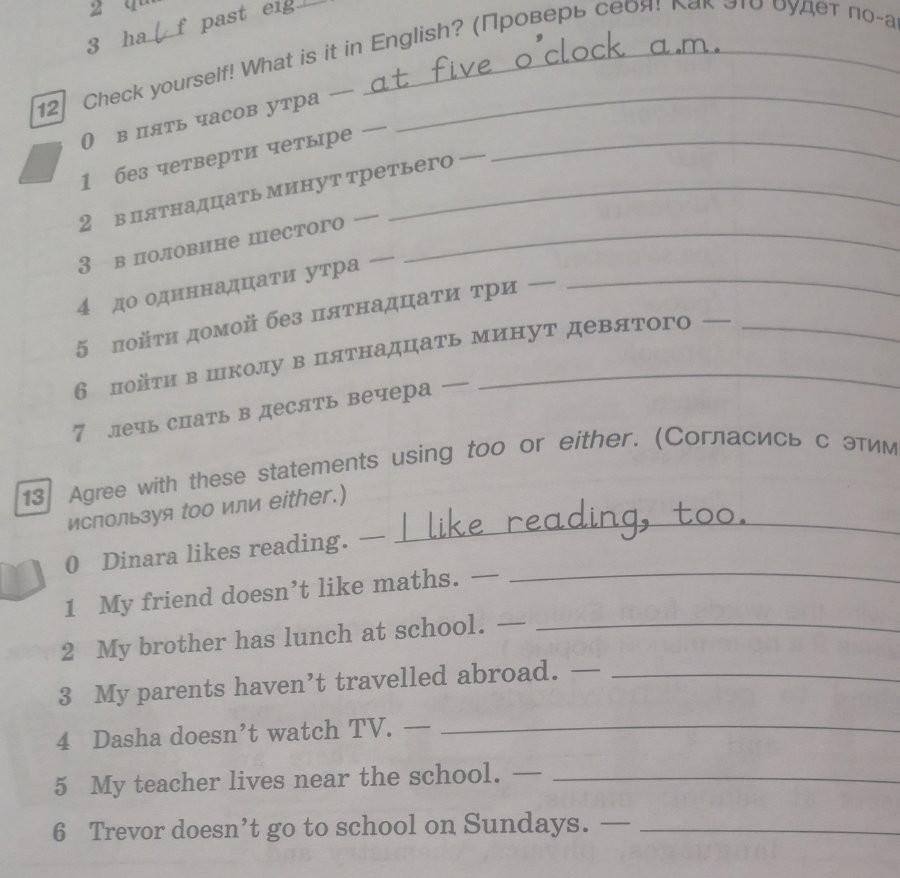 2
3 half past eig
12 Check yourself! What is it in English? (Проверь себя! Как это будет по-
0 в пять часов утра — at five o'clock a.m.
1 без четверти четыре —
2 в пятнадцать минут третьего —
3 в половине шестого —
4 до одиннадцати утра —
5 пойти домой без пятнадцати три —
6 пойти в школу в пятнадцать минут девятого —
7 лечь спать в десять вечера —
13 Agree with these statements using too or either. (Согласись с этим
используя too или either.)
0 Dinara likes reading. — I like reading, too.
1 My friend doesn't like maths. —
2 My brother has lunch at school. —
3 My parents haven't travelled abroad. —
4 Dasha doesn't watch TV. —
5 My teacher lives near the school. —
6 Trevor doesn't go to school on Sundays. —